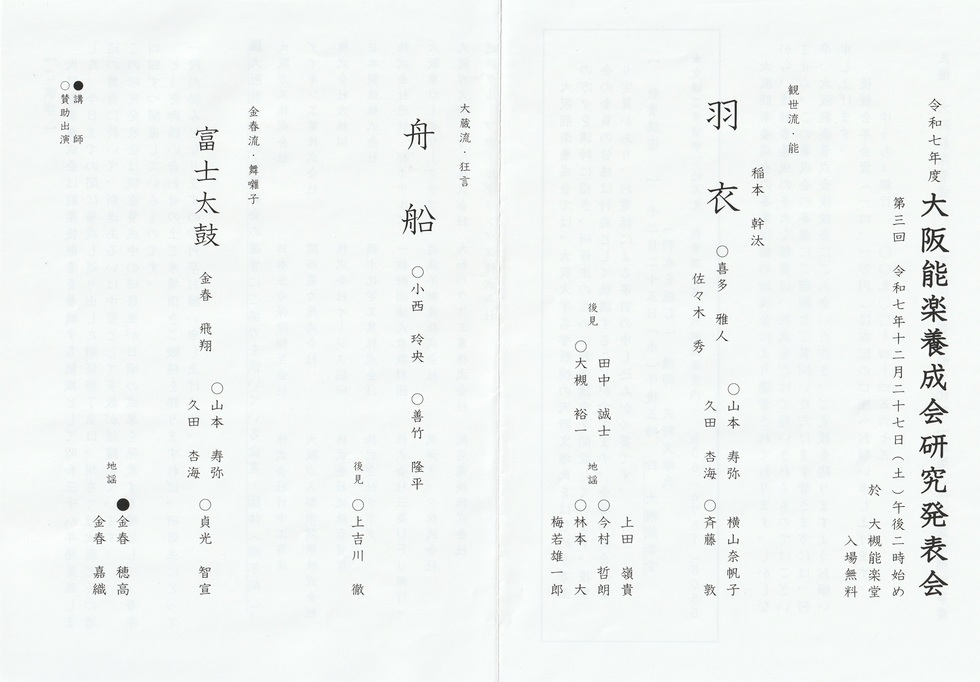 令和七年度 大阪能楽養成会研究発表会
第三回 令和七年十二月二十七日(土)午後二時始め
於 大槻能楽堂
入場無料
観世流・能
稲本 幹汰
羽衣
○喜多 雅人
佐々木 秀
○山本 寿弥
久田 杏海
横山奈帆子
○斉藤 敦
後見
田中 誠士
○大槻 裕一
地謡
上田 嶺貴
○今村 哲朗
○林本 大
梅若雄一郎
大蔵流・狂言
舟船
○小西 玲央
○善竹 隆平
後見
○上吉川 徹
金春流・舞囃子
富士太鼓
金春 飛翔
○山本 寿弥
久田 杏海
○貞光 智宣
地謡
●金春 穂高
金春 嘉織
●講師
○賛助出演